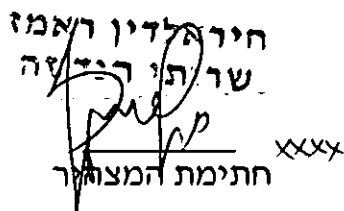 חיראלדין ראמז
שרותי הנדסה
xxxx
חתימת המצהיר